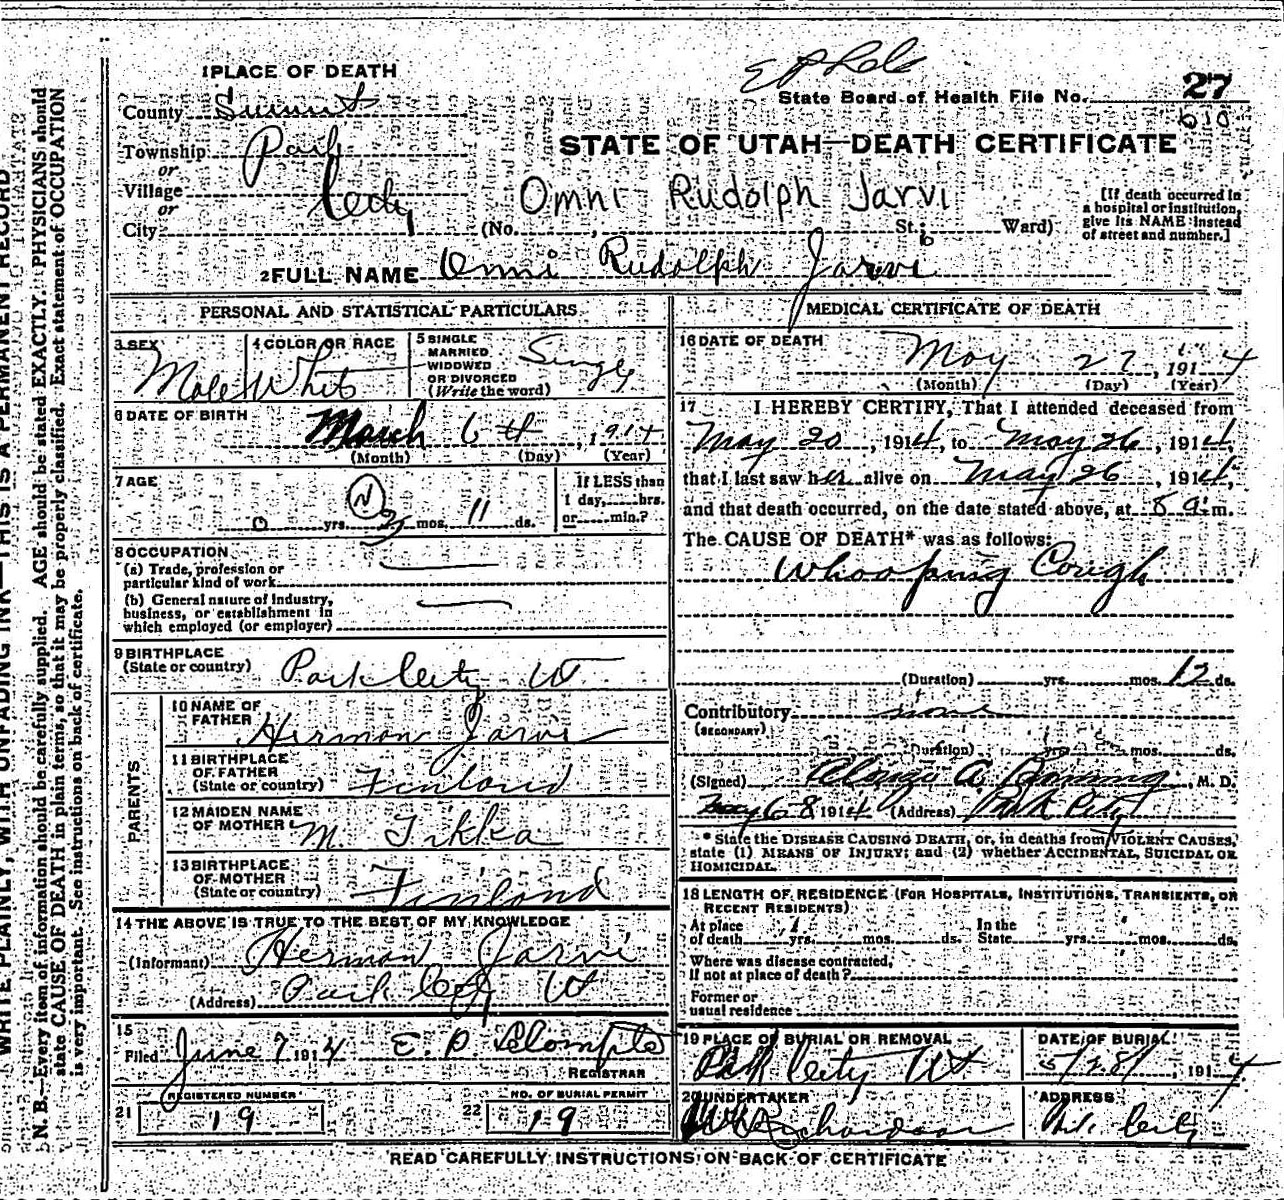 1 PLACE OF DEATH
State Board of Health File No. 27
610
County Summit
STATE OF UTAH—DEATH CERTIFICATE
Township Park
or
Village
or
City City
Omni Rudolph Jarvi
(No. St.; Ward)
[If death occurred in
a hospital or institution,
give its NAME instead
of street and number.]
2 FULL NAME Omni Rudolph Jarvi
PERSONAL AND STATISTICAL PARTICULARS
3 SEX Male
4 COLOR OR RACE White
5 SINGLE
MARRIED
WIDOWED
OR DIVORCED
(Write the word) Single
6 DATE OF BIRTH March 6th, 1914
(Month) (Day) (Year)
7 AGE
0 yrs. 2 mos. 11 ds.
If LESS than
1 day, hrs.
or min.?
8 OCCUPATION
(a) Trade, profession or
particular kind of work
(b) General nature of industry,
business, or establishment in
which employed (or employer)
9 BIRTHPLACE
(State or country) Park City Ut
PARENTS
10 NAME OF
FATHER Herman Jarvi
11 BIRTHPLACE
OF FATHER
(State or country) Finland
12 MAIDEN NAME
OF MOTHER M. Tikka
13 BIRTHPLACE
OF MOTHER
(State or country) Finland
14 THE ABOVE IS TRUE TO THE BEST OF MY KNOWLEDGE
(Informant) Herman Jarvi
(Address) Park City Ut
15
Filed June 7 1914 E. P.
REGISTRAR
REGISTERED NUMBER
21 19
NO. OF BURIAL PERMIT
22 19
MEDICAL CERTIFICATE OF DEATH
16 DATE OF DEATH May 27, 1914
(Month) (Day) (Year)
17 I HEREBY CERTIFY, That I attended deceased from
May 20, 1914, to May 26, 1914,
that I last saw her alive on May 26, 1914,
and that death occurred, on the date stated above, at 8 a. m.
The CAUSE OF DEATH* was as follows:
Whooping Cough
(Duration) yrs. mos. 12 ds.
Contributory none
(SECONDARY)
(Duration) yrs. mos. ds.
(Signed) A. M. D.
1914 (Address) Park City
* State the DISEASE CAUSING DEATH, or, in deaths from VIOLENT CAUSES,
state (1) MEANS OF INJURY; and (2) whether ACCIDENTAL, SUICIDAL OR
HOMICIDAL.
18 LENGTH OF RESIDENCE (FOR HOSPITALS, INSTITUTIONS, TRANSIENTS, OR
RECENT RESIDENTS)
At place
of death yrs. mos. ds.
In the
State yrs. mos. ds.
Where was disease contracted,
if not at place of death?
Former or
usual residence
19 PLACE OF BURIAL OR REMOVAL
Park City Ut
DATE OF BURIAL
5/28/, 1914
20 UNDERTAKER
Richardson
ADDRESS
Pk. City
READ CAREFULLY INSTRUCTIONS ON BACK OF CERTIFICATE
WRITE PLAINLY, WITH UNFADING INK—THIS IS A PERMANENT RECORD
N. B.—Every item of information should be carefully supplied. AGE should be stated EXACTLY. PHYSICIANS should
state CAUSE OF DEATH in plain terms, so that it may be properly classified. Exact statement of OCCUPATION
is very important. See instructions on back of certificate.